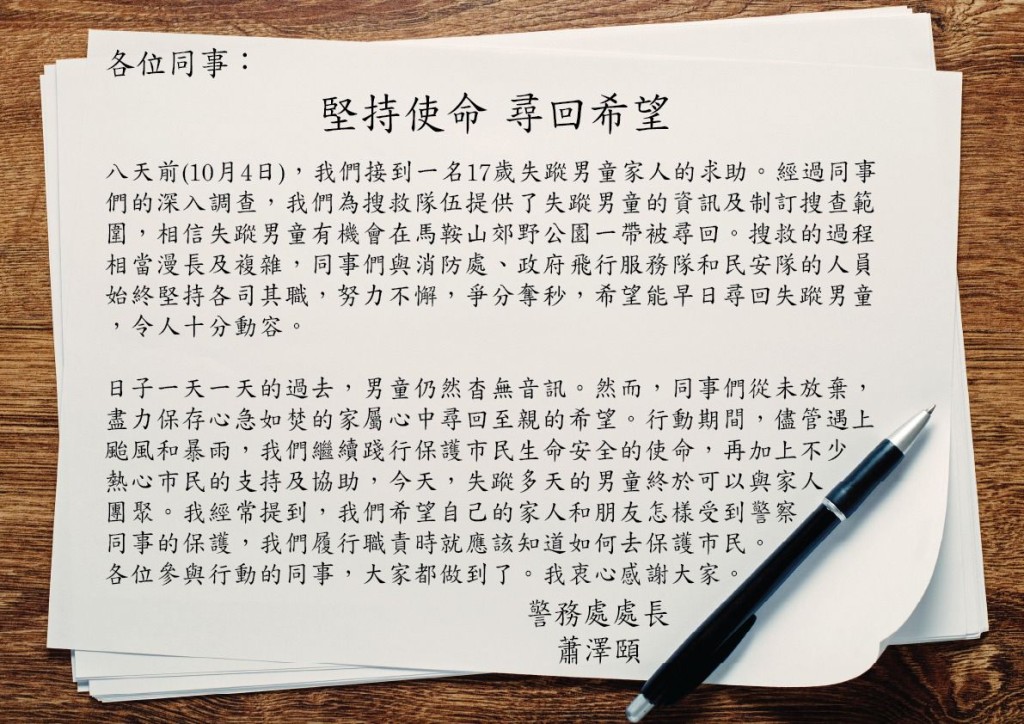 各位同事：
堅持使命 尋回希望
八天前(10月4日)，我們接到一名17歲失蹤男童家人的求助。經過同事
們的深入調查，我們為搜救隊伍提供了失蹤男童的資訊及制訂搜查範
圍，相信失蹤男童有機會在馬鞍山郊野公園一帶被尋回。搜救的過程
相當漫長及複雜，同事們與消防處、政府飛行服務隊和民安隊的人員
始終堅持各司其職，努力不懈，爭分奪秒，希望能早日尋回失蹤男童
，令人十分動容。
日子一天一天的過去，男童仍然杳無音訊。然而，同事們從未放棄，
盡力保存心急如焚的家屬心中尋回至親的希望。行動期間，儘管遇上
颱風和暴雨，我們繼續踐行保護市民生命安全的使命，再加上不少
熱心市民的支持及協助，今天，失蹤多天的男童終於可以與家人
團聚。我經常提到，我們希望自己的家人和朋友怎樣受到警察
同事的保護，我們履行職責時就應該知道如何去保護市民。
各位參與行動的同事，大家都做到了。我衷心感謝大家。
警務處處長
蕭澤頤